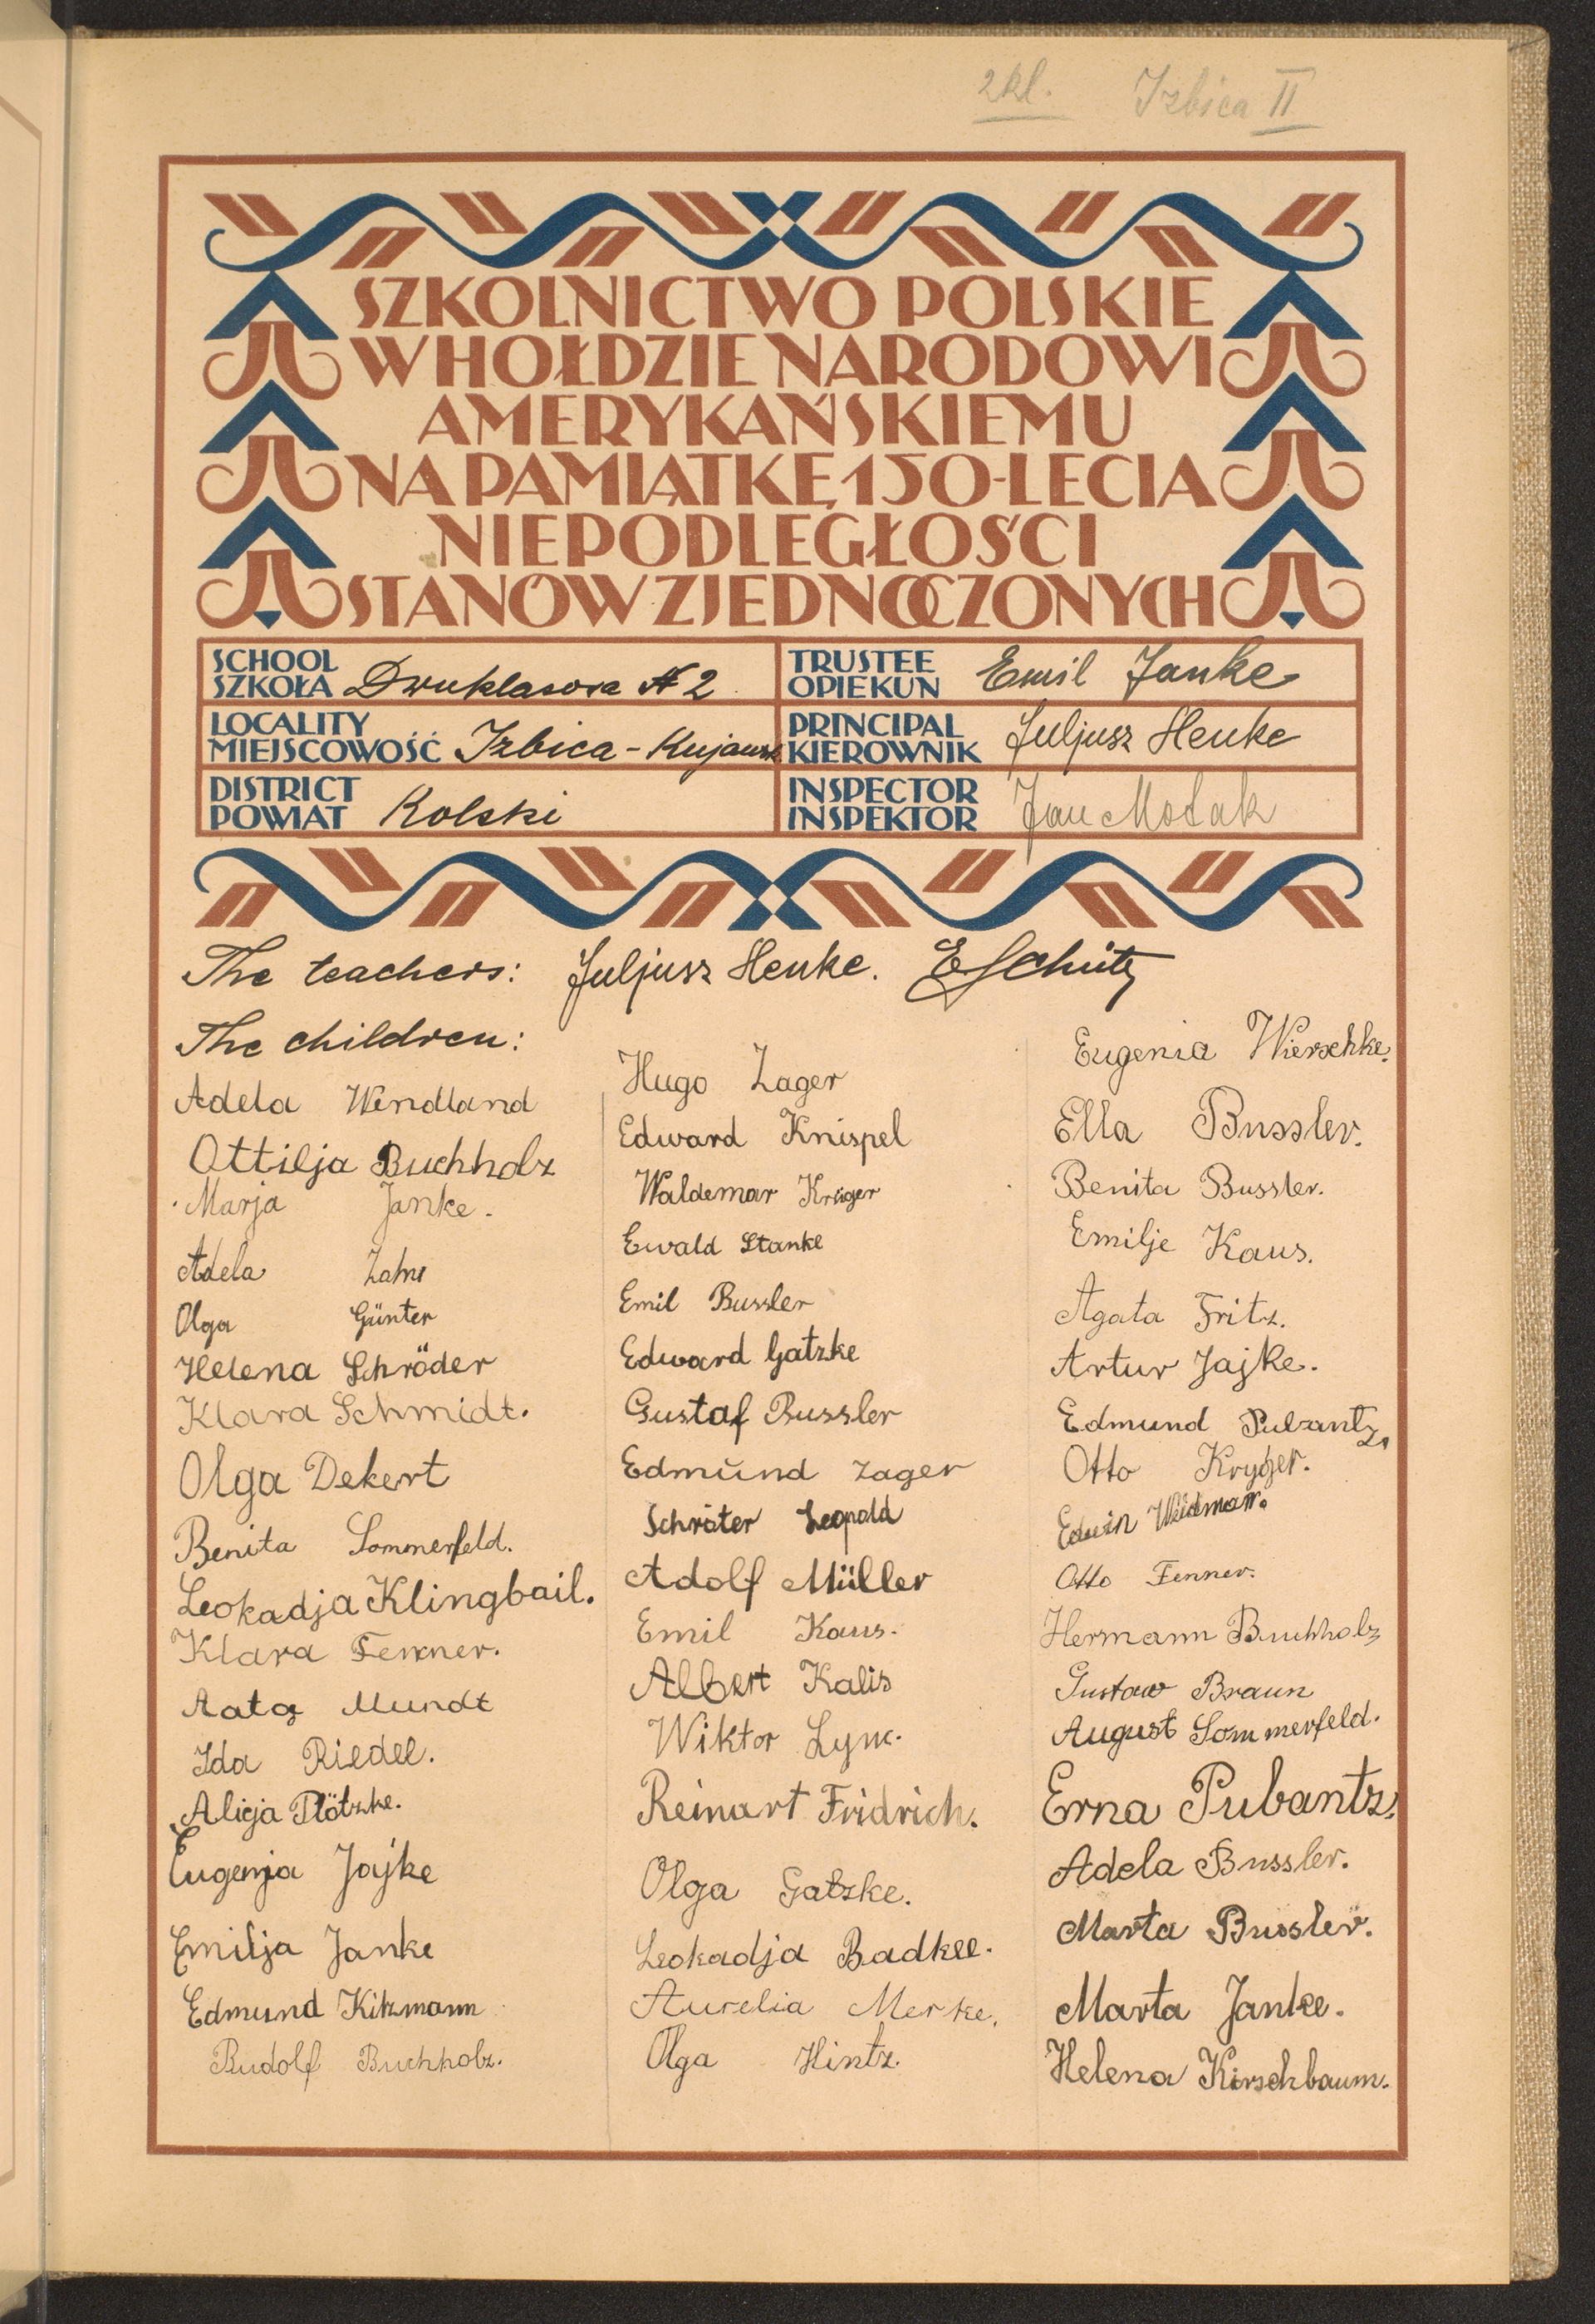 2kl. Izbica II
SZKOLNICTWO POLSKIE
W HOŁDZIE NARODOWI
AMERYKAŃSKIEMU
NA PAMIĄTKĘ 150-LECIA
NIEPODLEGŁOŚCI
STANÓW ZJEDNOCZONYCH
SCHOOL
SZKOŁA Dwuklasowa № 2
TRUSTEE
OPIEKUN Emil Janke
LOCALITY
MIEJSCOWOŚĆ Izbica-Kujawsk
PRINCIPAL
KIEROWNIK Juljusz Henke
DISTRICT
POWIAT Kolski
INSPECTOR
INSPEKTOR Jan
The teachers: Juljusz Henke. E Schütz
The children:
Adela Wendland
Ottilja Buchholz
Marja Janke.
Adela Zahn
Olga Günter
Helena Schröder
Klara Schmidt.
Olga Dekert
Benita Sommerfeld.
Leokadja Klingbail.
Klara Fenner.
Mundt
Ida Riedel.
Alicja Plötzke.
Eugenja Jajke
Emilja Janke
Edmund Kitzmann
Rudolf Buchholz.
Hugo Zager
Edward Knispel
Waldemar Krüger
Ewald Stanke
Emil Bussler
Edward Gatzke
Gustaf Bussler
Edmund Zager
Schröter Leopold
Adolf Müller
Emil Kaus.
Albert Kalis
Wiktor
Reinart Fridrich.
Olga Gatzke.
Leokadja Badkee.
Aurelia Merke.
Olga Hintz.
Eugenia Wierschke.
Ella Bussler.
Benita Bussler.
Emilje Kaus.
Agata Fritz.
Artur Jajke.
Edmund Pubantz.
Otto Kryger.
Edwin
Otto Fenner.
Hermann Buchholz
Gustaw Braun
August Sommerfeld.
Erna Pubantz.
Adela Bussler.
Marta Bussler.
Marta Janke.
Helena Kirschbaum.